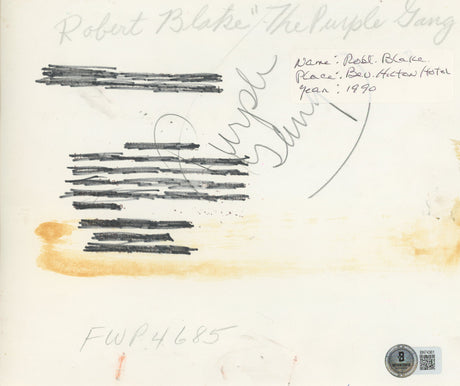 Robert Blake "The Purple Gang
Name: Robt. Blake
Place: Bev. Hilton Hotel
Year: 1990
Purple
Gang
FWP.4685